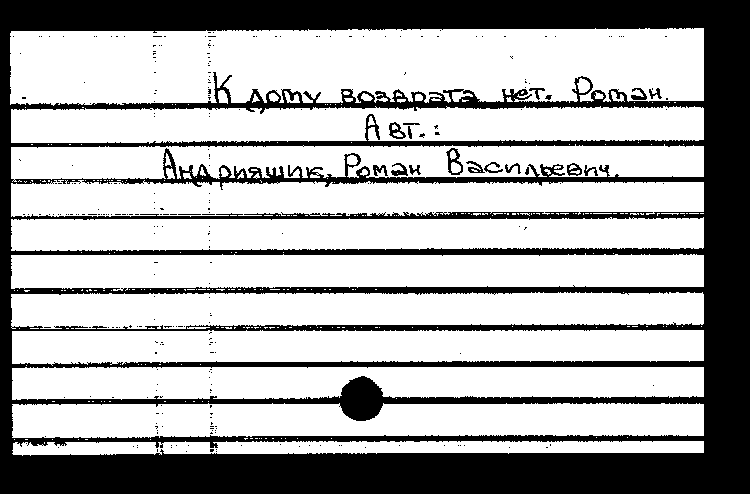 К дому возврата нет. Роман.
Авт.:
Андрияшик, Роман Васильевич.